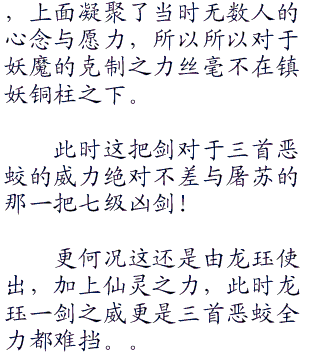 ，上面凝聚了当时无数人的
心念与愿力，所以所以对于
妖魔的克制之力丝毫不在镇
妖铜柱之下。
此时这把剑对于三首恶
蛟的威力绝对不差与屠苏的
那一把七级凶剑！
更何况这还是由龙珏使
出，加上仙灵之力，此时龙
珏一剑之威更是三首恶蛟全
力都难挡。。